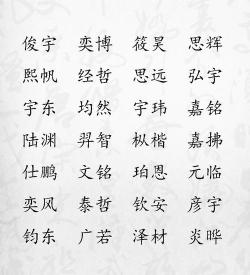 俊宇 奕博 筱昊 思辉
熙帆 经哲 思远 弘宇
宇东 均然 宇玮 嘉铭
陆渊 羿智 枞楷 嘉拂
仕鹏 文铭 珀恩 元临
奕风 泰哲 钦安 彦宇
钧东 广若 泽材 炎晔